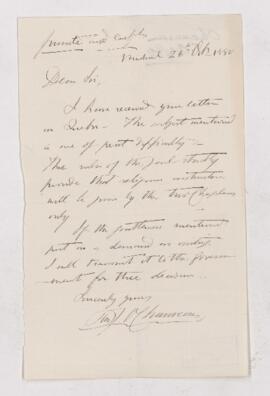 private and confid.
Montreal 26th Oct. 1880
Dear Sir,
I have received your letter
in Quebec - The subject mentioned
is one of great difficulty -
The rules of the jail strictly
provide that religious instruction
will be given by the two Chaplains
only
If the gentlemen mentioned
put in a demand in writing
I will transmit it to the govern-
ment for their decision -
Sincerely yours
Chauveau